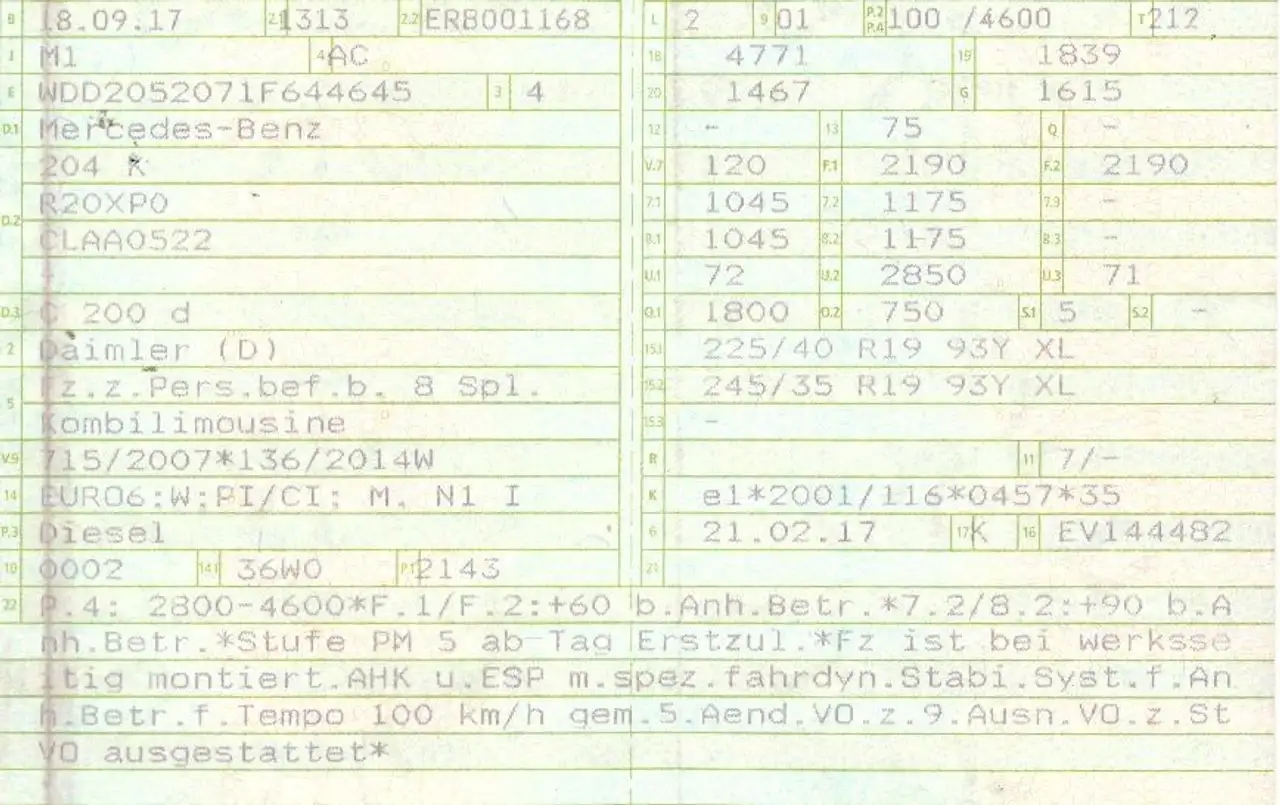 B 18.09.17 2.1 1313 2.2 ERB001168 L 2 9 01 P.2 P.4 100 /4600 T 212
J M1 4 AC 18 4771 19 1839
E WDD2052071F644645 3 4 20 1467 G 1615
D.1 Mercedes-Benz 12 - 13 75 Q -
204 K V.7 120 F.1 2190 F.2 2190
D.2 R20XP0 7.1 1045 7.2 1175 7.3 -
CLAA0522 8.1 1045 8.2 1175 8.3 -
4 U.1 72 U.2 2850 U.3 71
D.3 C 200 d O.1 1800 O.2 750 S.1 5 S.2 -
2 Daimler (D) 15.1 225/40 R19 93Y XL
5 Fz.z.Pers.bef.b. 8 Spl. 15.2 245/35 R19 93Y XL
Kombilimousine 15.3 -
V.9 715/2007*136/2014W R 11 7/-
14 EURO6;W;PI/CI; M, N1 I K e1*2001/116*0457*35
P.3 Diesel 6 21.02.17 17 K 16 EV144482
10 0002 14.1 36W0 P.1 2143 21
22 P.4: 2800-4600*F.1/F.2:+60 b.Anh.Betr.*7.2/8.2:+90 b.A
nh.Betr.*Stufe PM 5 ab Tag Erstzul.*Fz ist bei werksse
itig montiert.AHK u.ESP m.spez.fahrdyn.Stabi.Syst.f.An
h.Betr.f.Tempo 100 km/h gem.5.Aend.VO.z.9.Ausn.VO.z.St
VO ausgestattet*